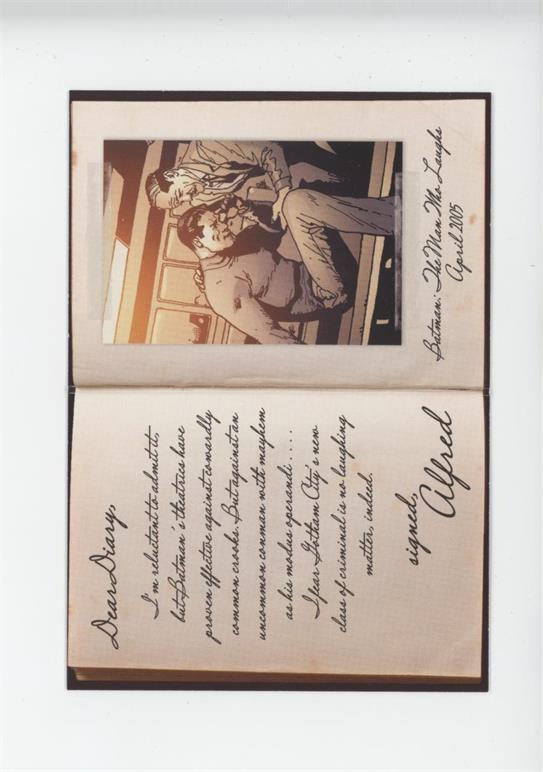 Dear Diary,
I'm reluctant to admit it,
but Batman's theatrics have
proven effective against cowardly
common crooks. But against an
uncommon conman with mayhem
as his modus operandi . . . .
I fear Gotham City's new
class of criminal is no laughing
matter, indeed.
signed,
Alfred
Batman: The Man Who Laughs
April 2005